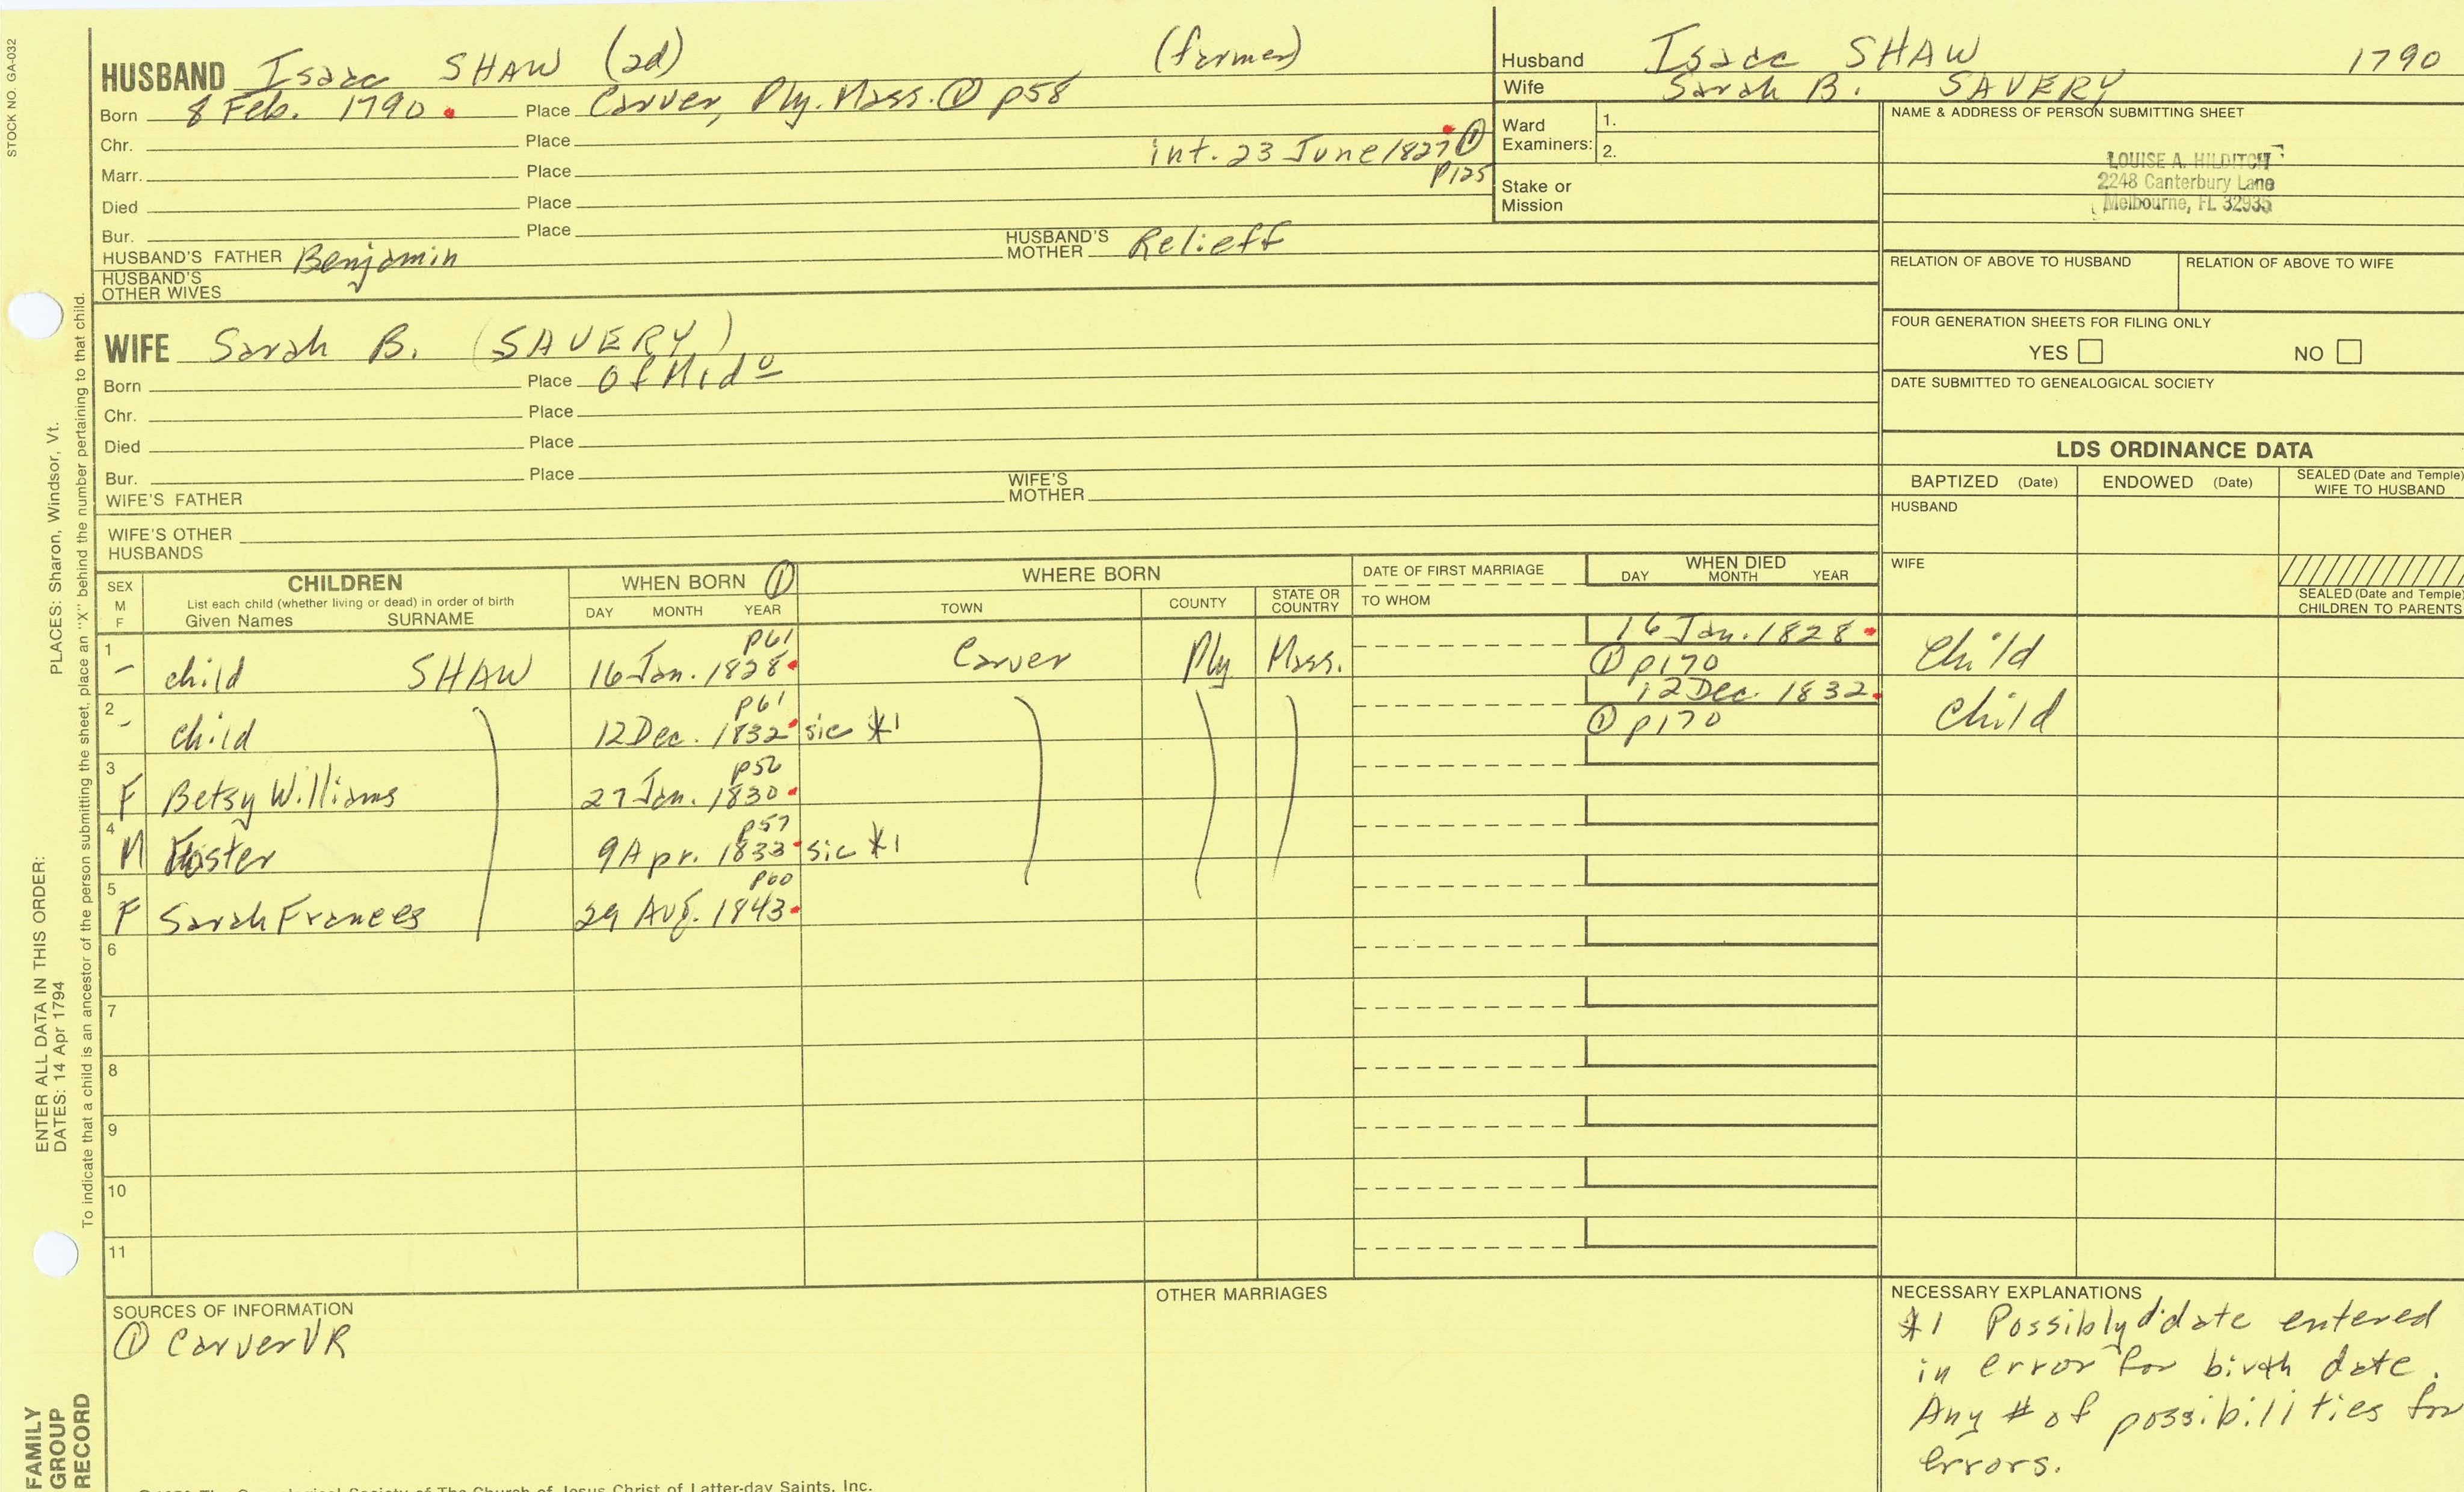 STOCK NO. GA-032
HUSBAND Isaac SHAW (2d) (farmer)
Born 8 Feb. 1790 Place Carver, Ply. Mass. ① p58
Chr. Place
int. 23 June 1827 ①
Marr. Place p125
Died Place
Bur. Place
HUSBAND'S FATHER Benjamin HUSBAND'S MOTHER Relieff
HUSBAND'S OTHER WIVES
Husband Isaac SHAW 1790
Wife Sarah B. SAVERY
Ward Examiners: 1.
2.
Stake or Mission
NAME & ADDRESS OF PERSON SUBMITTING SHEET
LOUISE A. HILDITCH
2248 Canterbury Lane
Melbourne, FL 32935
RELATION OF ABOVE TO HUSBAND RELATION OF ABOVE TO WIFE
FOUR GENERATION SHEETS FOR FILING ONLY
YES NO
DATE SUBMITTED TO GENEALOGICAL SOCIETY
WIFE Sarah B. (SAVERY)
Born Place of Mido
Chr. Place
Died Place
Bur. Place
WIFE'S FATHER WIFE'S MOTHER
WIFE'S OTHER HUSBANDS
LDS ORDINANCE DATA
BAPTIZED (Date) ENDOWED (Date) SEALED (Date and Temple) WIFE TO HUSBAND
HUSBAND
WIFE
SEALED (Date and Temple) CHILDREN TO PARENTS
SEX M F
CHILDREN
List each child (whether living or dead) in order of birth
Given Names SURNAME
WHEN BORN ①
DAY MONTH YEAR
WHERE BORN
TOWN COUNTY STATE OR COUNTRY
DATE OF FIRST MARRIAGE
TO WHOM
WHEN DIED
DAY MONTH YEAR
1 p61 16 Jan. 1828
- child SHAW 16 Jan. 1828 Carver Ply Mass. ① p170 Child
2 p61 12 Dec. 1832
- child 12 Dec. 1832 sic *1 ① p170 Child
3 p56
F Betsy Williams 27 Jan. 1830
4 p57
M Foster 9 Apr. 1833 sic *1
5 p60
F Sarah Frances 29 Aug. 1843
6
7
8
9
10
11
SOURCES OF INFORMATION
① Carver VR
OTHER MARRIAGES
NECESSARY EXPLANATIONS
*1 Possibly d'date entered
in error for birth date.
Any # of possibilities for
errors.
ENTER ALL DATA IN THIS ORDER:
DATES: 14 Apr 1794 PLACES: Sharon, Windsor, Vt.
To indicate that a child is an ancestor of the person submitting the sheet, place an "X" behind the number pertaining to that child.
FAMILY
GROUP
RECORD
The Genealogical Society of The Church of Jesus Christ of Latter-day Saints, Inc.